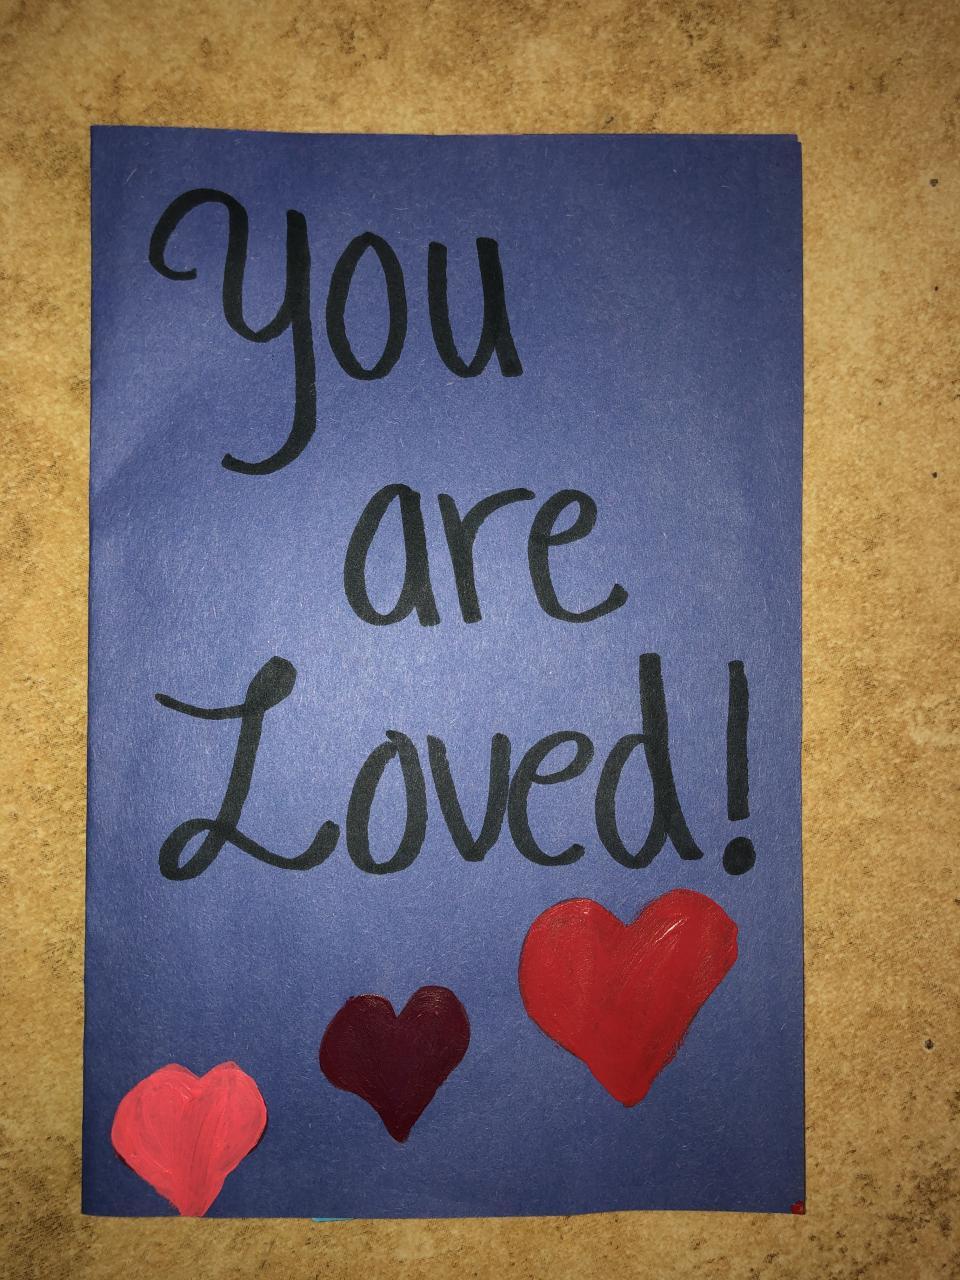 You
are
Loved!